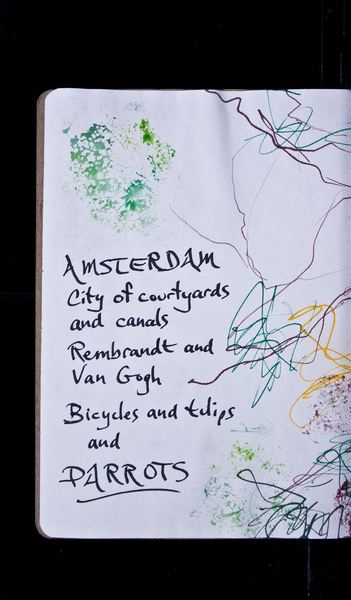 AMSTERDAM
City of courtyards
and canals
Rembrandt and
Van Gogh
Bicycles and tulips
and
PARROTS